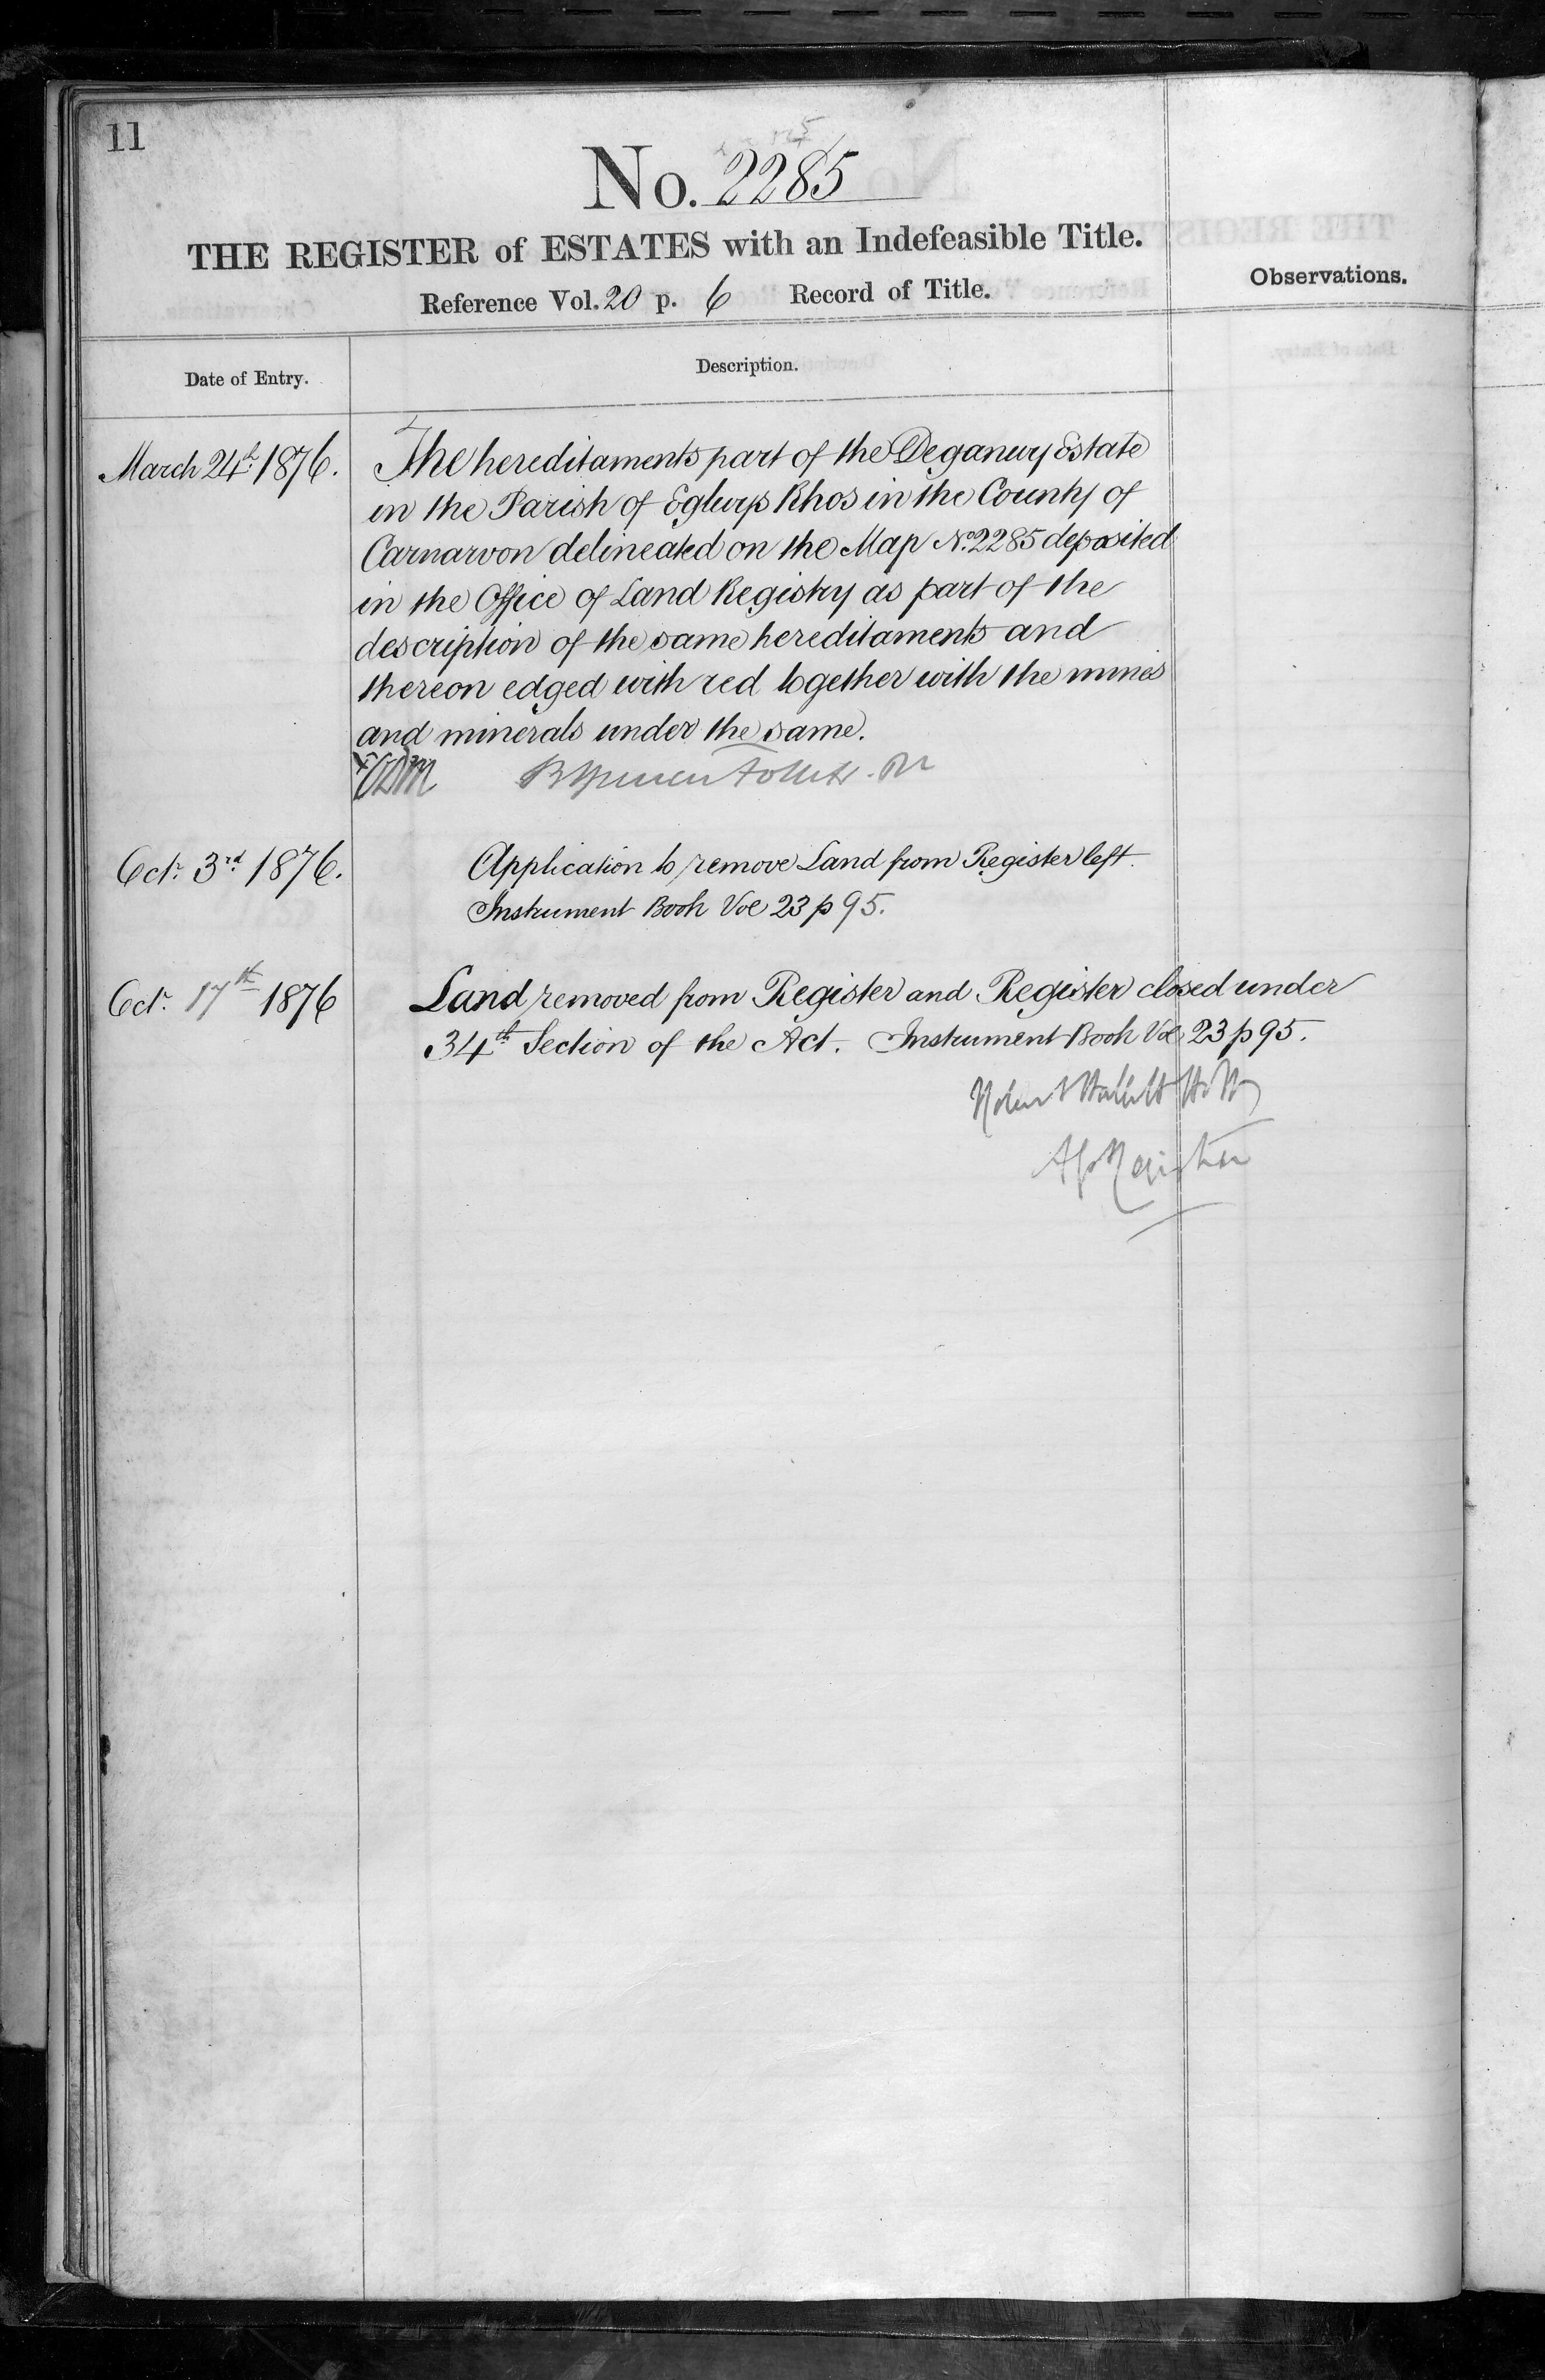 11
No. 2285
THE REGISTER of ESTATES with an Indefeasible Title.
Reference Vol. 20 p. 6 Record of Title.
Observations.
Date of Entry.
Description.
March 24th 1876.
The hereditaments part of the Deganwy Estate
in the Parish of Eglwys Rhos in the County of
Carnarvon delineated on the Map No. 2285 deposited
in the Office of Land Registry as part of the
description of the same hereditaments and
thereon edged with red together with the mines
and minerals under the same.
Oct. 3rd 1876.
Application to remove Land from Register left.
Instrument Book Vol 23 p 95.
Oct. 17th 1876
Land removed from Register and Register closed under
34th Section of the Act. Instrument Book Vol 23 p 95.